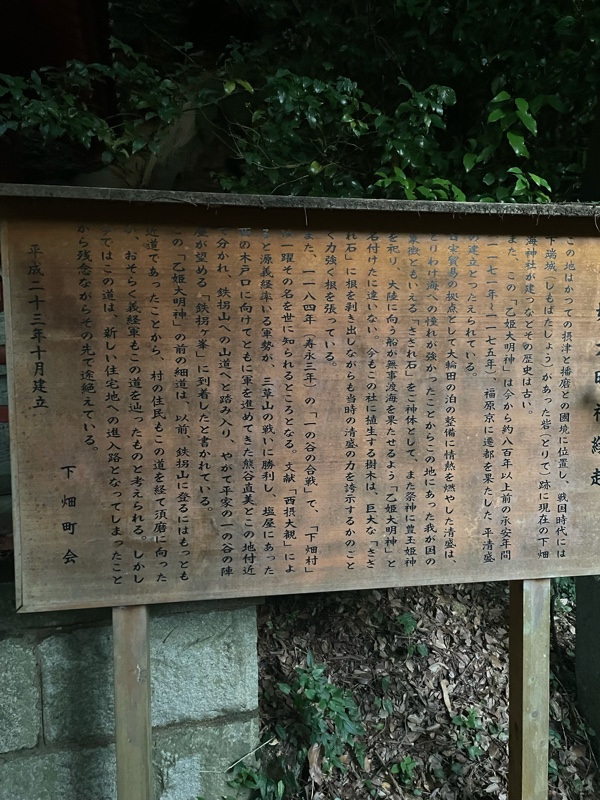 大明神縁起
この地はかつての摂津と播磨との國境に位置し、戦国時代には
下瑞城(しもばたじょう)があった砦(とりで)跡に現在の下畑
海神社が建つなどその歴史は古い。
また、この「乙姫大明神」は今から約八百年以上前の承安年間
一一七一年~一一七五年)、福原京に遷都を果たした、平清盛
の建立とつたえられている。
日宋貿易の拠点として大輪田の泊の整備に情熱を燃やした清盛は、
とりわけ海への憧れが強かったことからこの地にあった我が国の
象徴ともいえる「さざれ石」をご神体として、また祭神に豊玉姫神
を祀り、大陸に向う船が無事渡海を果たせるよう「乙姫大明神」と
名付けたに違いない。今もこの社に植生する樹木は、巨大な「さざ
れ石」に根を剥き出しながらも当時の清盛の力を誇示するかのごと
く力強く根を張っている。
また、一一八四年(寿永三年)の「一の谷の合戦」で、「下畑村」
は一躍その名を世に知られるところとなる。文献「西摂大観」によ
ると源義経率いる軍勢が、三草山の戦いに勝利し、塩屋にあった
の木戸口に向けてともに軍を進めてきた熊谷直実とこの地付近
で分かれ、鉄拐山への山道へと踏み入り、やがて平家の一の谷の陣
が望める「鉄拐ケ峯」に到着したと書かれている。
この「乙姫大明神」の前の細道は、以前、鉄拐山に登るにはもっとも
近道であったことから、村の住民もこの道を経て須磨に向った
、おそらく義経軍もこの道を辿ったものと考えられる。しかし
ではこの道は、新しい住宅地への進入路となってしまったこと
から残念ながらその先で途絶えている。
平成二十三年十月建立
下畑町会